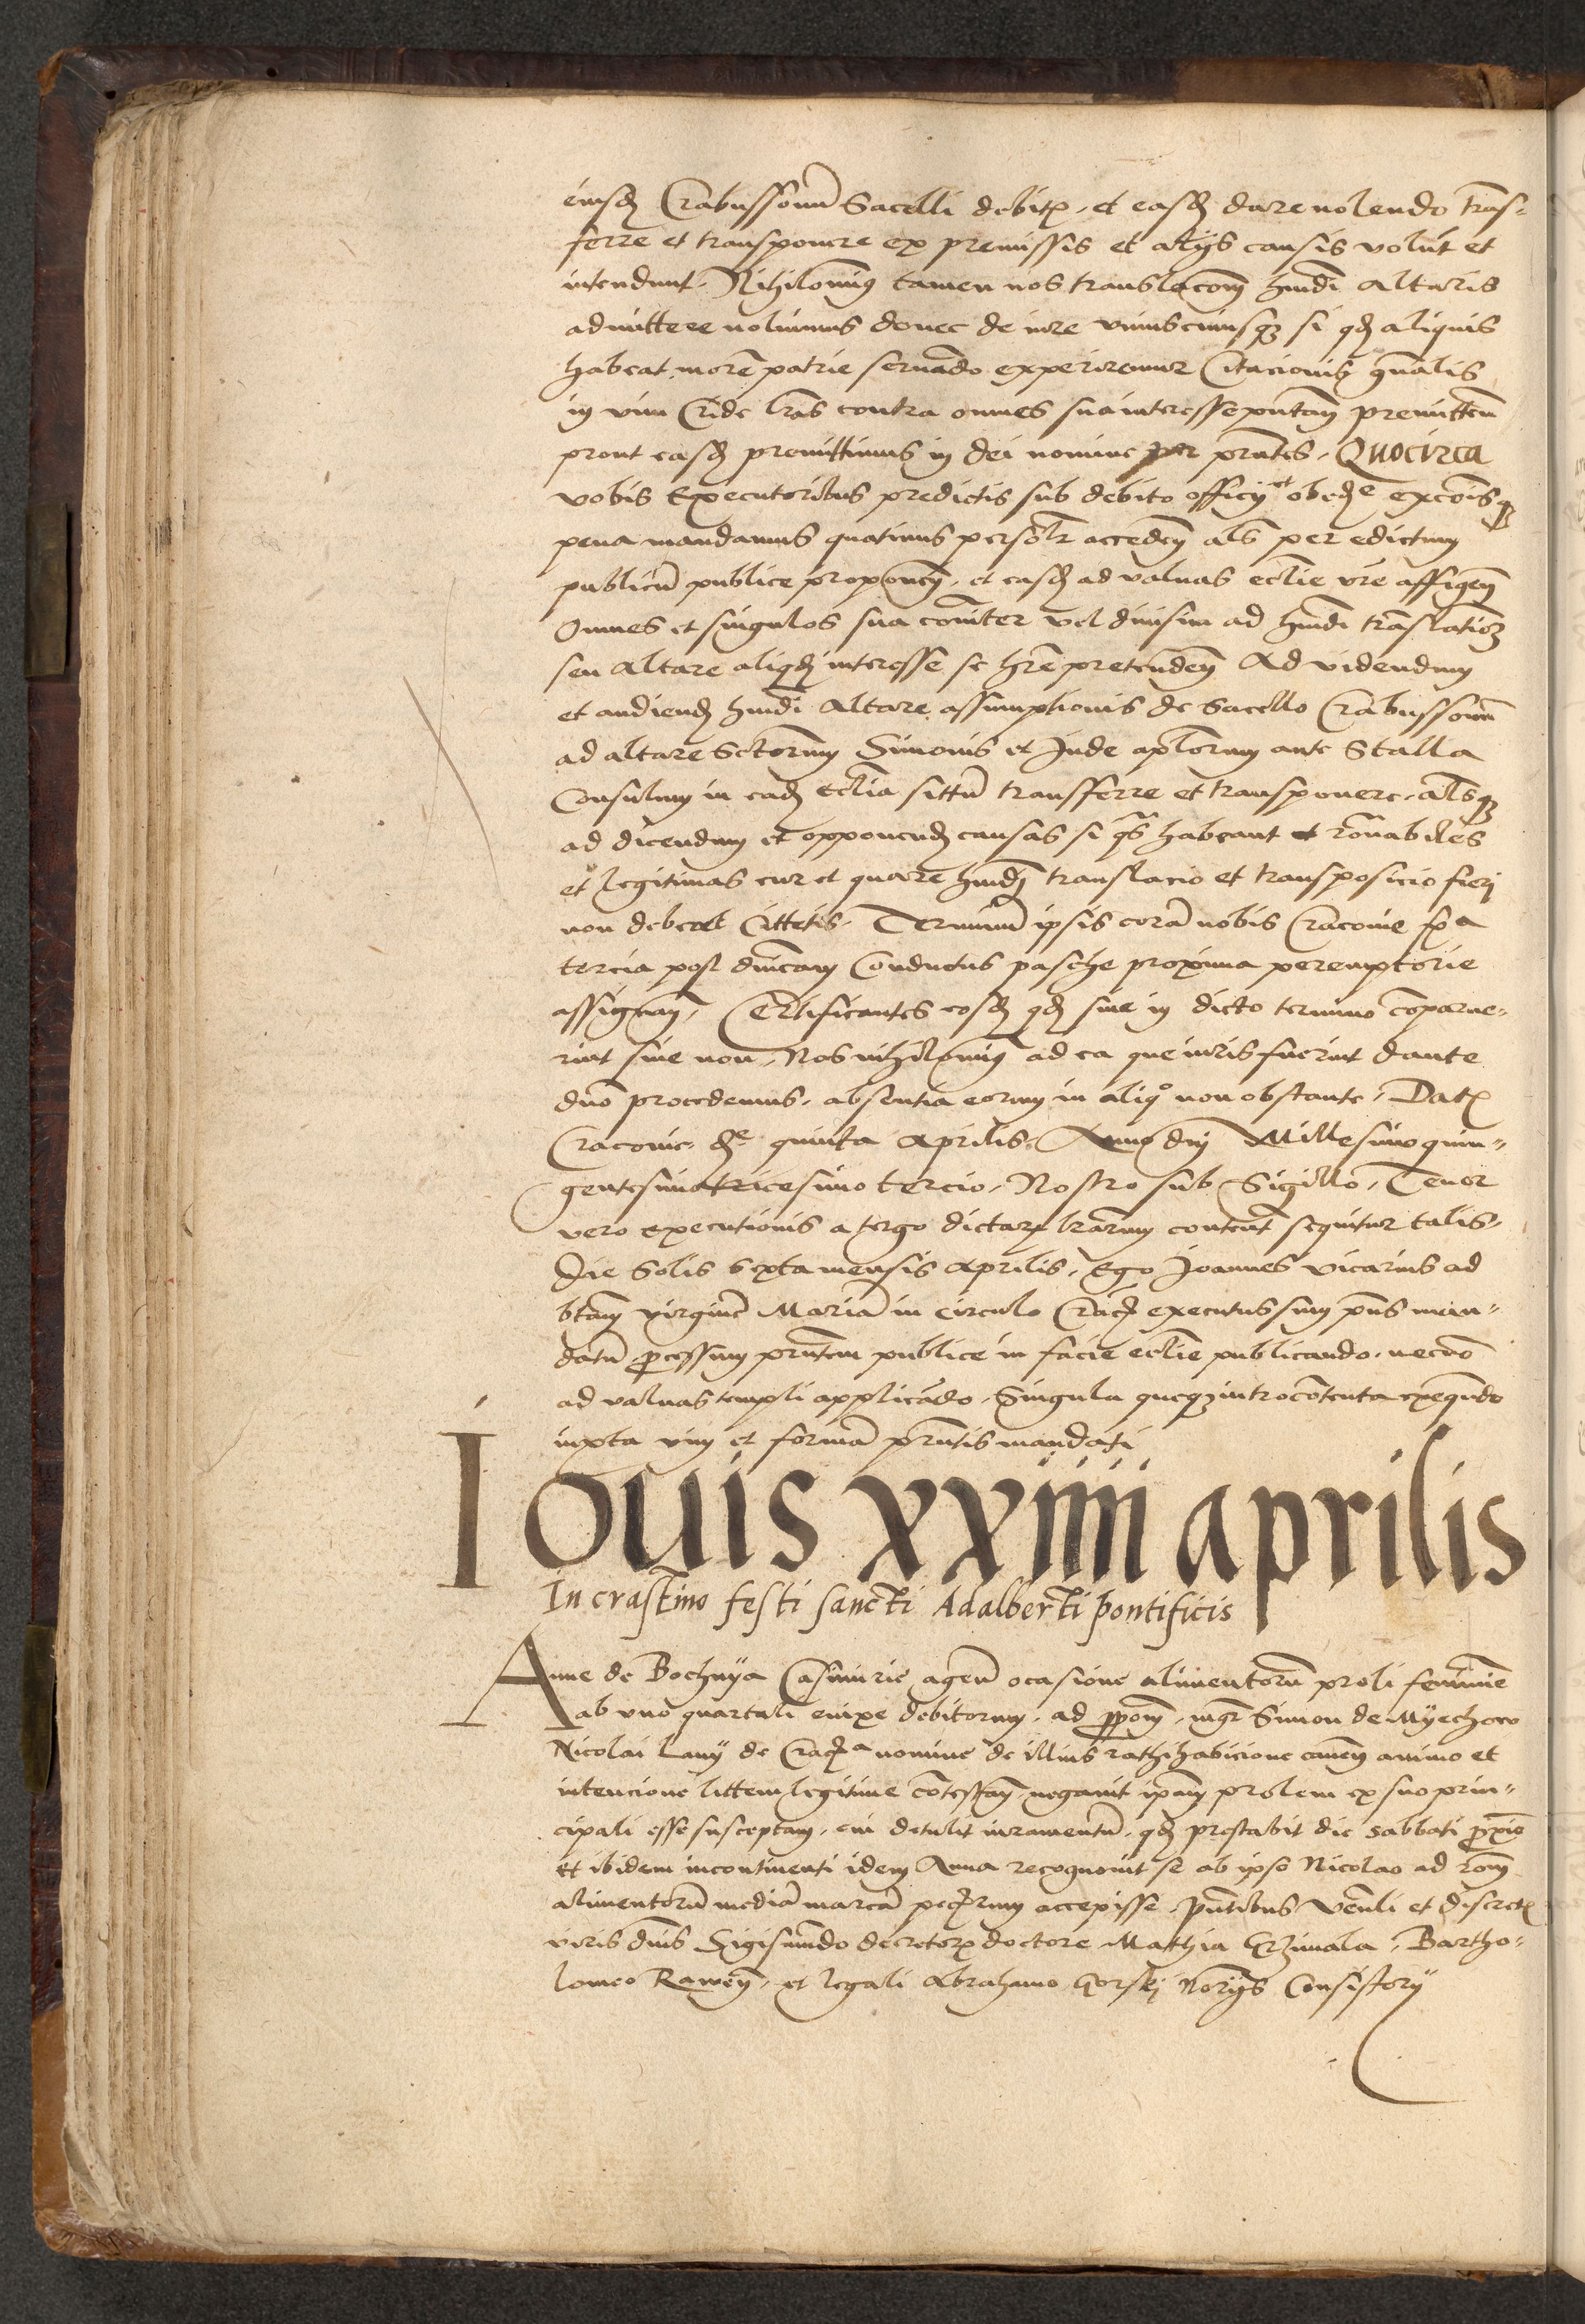 eiusdem Crabussonum Sacelli debitis, et easdem dare nolendo trans-
ferre et transponere ex premissis et alijs causis volunt et
intendunt. Nihilominus tamen nos translacionem huiusmodi Altaris
admittere nolumus donec de iure uniuscuiusque si quod aliquis
habeat, morem patrie servando experiremur Citacionis generalis
in vim Cride literas contra omnes sua interesse putantes premittendo
prout easdem premittimus in dei nomine per presentes. Quocirca
vobis Executoribus predictis sub debito officij et obediencie excommunicacionisque
pena mandamus quatinus personaliter accedentes alias per edictum
publicum publice proponentes, et easdem ad valvas ecclesie vestre affigentes
Omnes et singulos sua communiter vel divisim ad huiusmodi translationem
seu Altare aliquod interesse se habere pretendentes Ad videndum
et audiendum huiusmodi Altare assumptionis de Sacello Crabussonum
ad altare Sanctorum Simonis et Jude apostolorum ante Stalla
Consulum in eadem Ecclesia situm transferre et transponere, aliasque
ad dicendum et opponendum causas si quas habeant et racionabiles
et legitimas cur et quare huiusmodi translacio et transposicio fieri
non debeat Cittetis. Terminum ipsis coram nobis Cracovie feria
tercia post dominicam Conductus pasche proxima peremptorie
assignantes, Certificantes eosdem quod sive in dicto termino comparue-
rint sive non, Nos nihilominus ad ea que iuris fuerint dante
domino procedemus, absentia eorum in aliquo non obstante. Datum
Cracovie die quinta Aprilis, Anno domini Millesimo quin-
gentesimo tricesimo tercio, Nostro sub Sigillo. Tenor
vero executionis a tergo dictarum literarum contentus sequitur talis.
Die Solis sexta mensis Aprilis, Ego Joannes vicarius ad
beatam virginem Mariam in circulo Cracoviensi executus sum presens man-
datum processum presentem publice in facie ecclesie publicando, necnon
ad valvas templi applicando, Singula queque introcontenta exequendo
iuxta vim et formam presentis mandati
Jovis xxiiii aprilis
In crastino festi sancti Adalberti pontificis
Anne de Bochnya Casimirie agentis ocasione alimentorum proli feminine
ab uno quartali enixe debitorum, ad proposicionem, magister Simon de Myechow
Nicolai Lany de Cracovia nomine de illius rathihabicione cavens animo et
intencione littem legitime contestandi, negavit ipsam prolem ex suo prin-
cipali esse susceptam, cui detulit iuramentum, quod prestabit die sabbati proximo
Et ibidem incontinenti idem Anna recognovit se ab ipso Nicolao ad racionem
alimentorum mediam marcam pecuniarum accepisse. Presentibus Venerabili et discretis
viris dominis Sigismundo decretorum doctore Mathia Grzimala, Bartho-
lomeo Rawen, et legali Abrahamo Gorskj Notarijs Consistorij